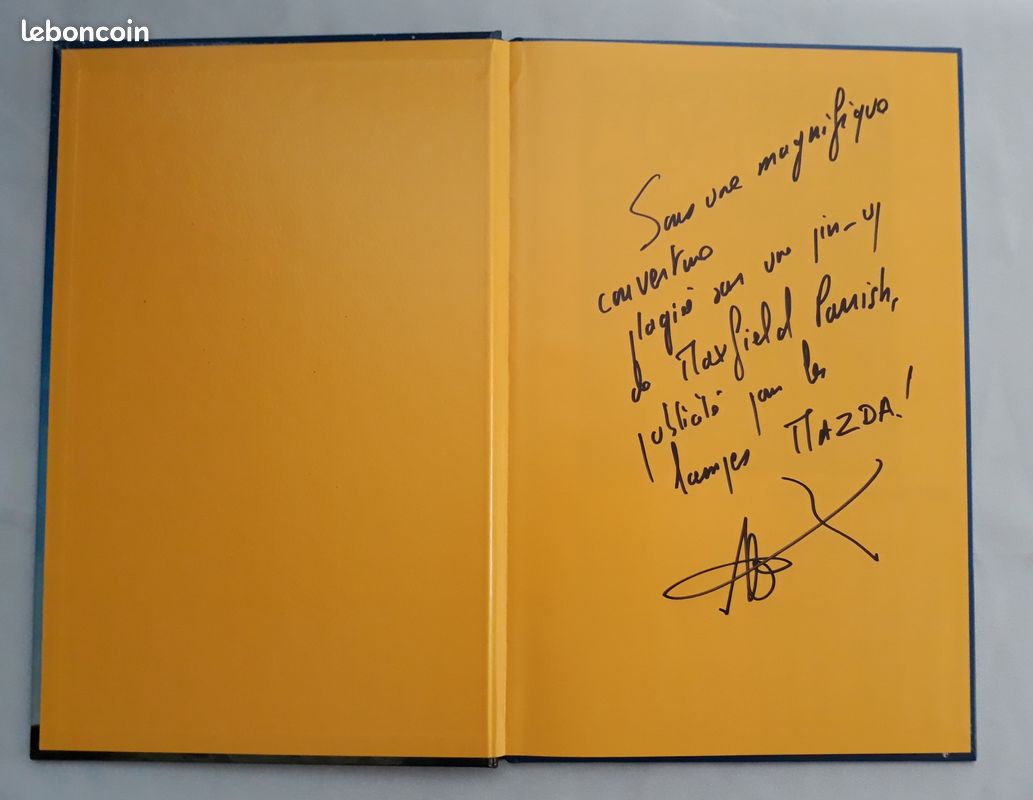 leboncoin
Sous une magnifique
couverture
plagiée sur une pin-up
de Maxfield Parrish,
publicité pour les
lampes MAZDA!